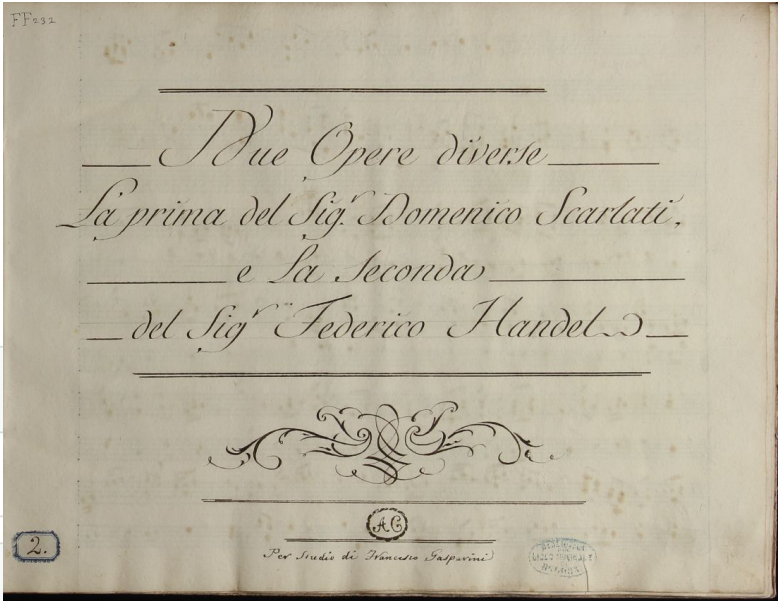 FF232
Due Opere diverse
La prima del Sig.r Domenico Scarlati,
e La Seconda
del Sig.r Federico Handel
AC
2.
Per Studio di Francesco Gasparini
LICEO MUSICALE
BOLOGNA